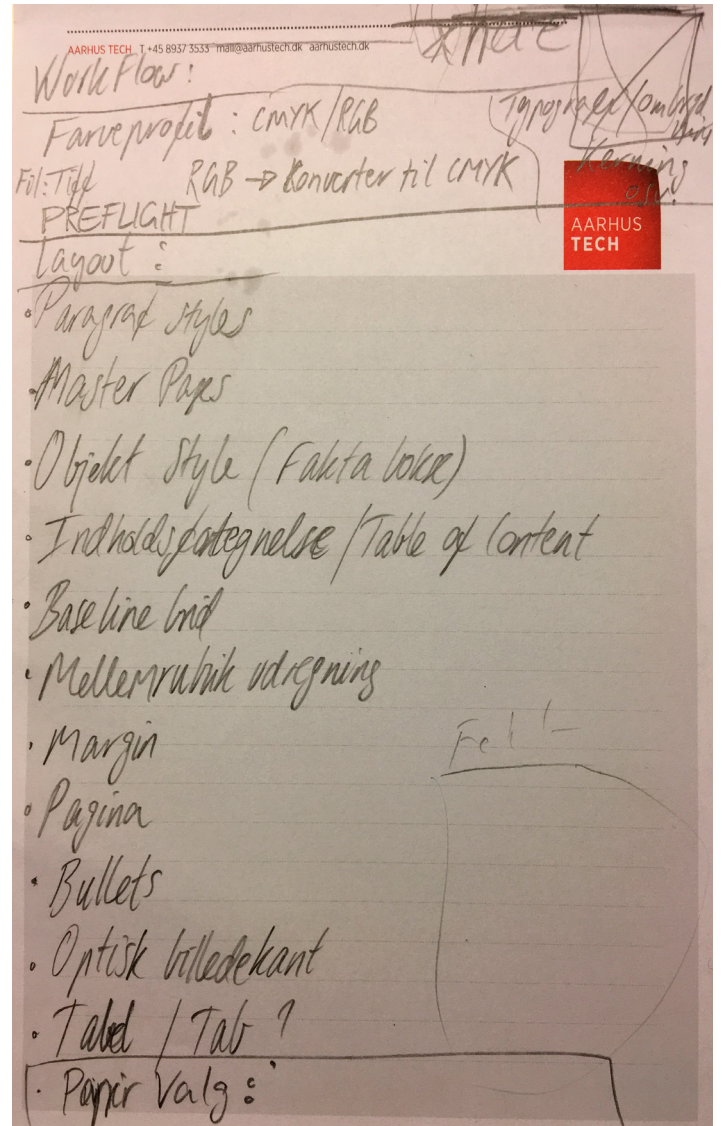 AARHUS TECH T +45 8937 3533 mail@aarhustech.dk aarhustech.dk
WorkFlow:
Farveprofil: CMYK/RGB
Typografi/ombrydning
Fil: Tiff RGB → Konverter til CMYK
Kerning
osv.
PREFLIGHT
AARHUS
TECH
Layout:
• Paragraf styles
• Master Pages
• Objekt Style (Fakta bokse)
• Indholdsfortegnelse/Table of Content
• Baseline Grid
• Mellemrubrik udregning
• Margin
• Pagina
• Bullets
• Optisk billedekant
• Tabel / Tab ?
• Papir Valg: